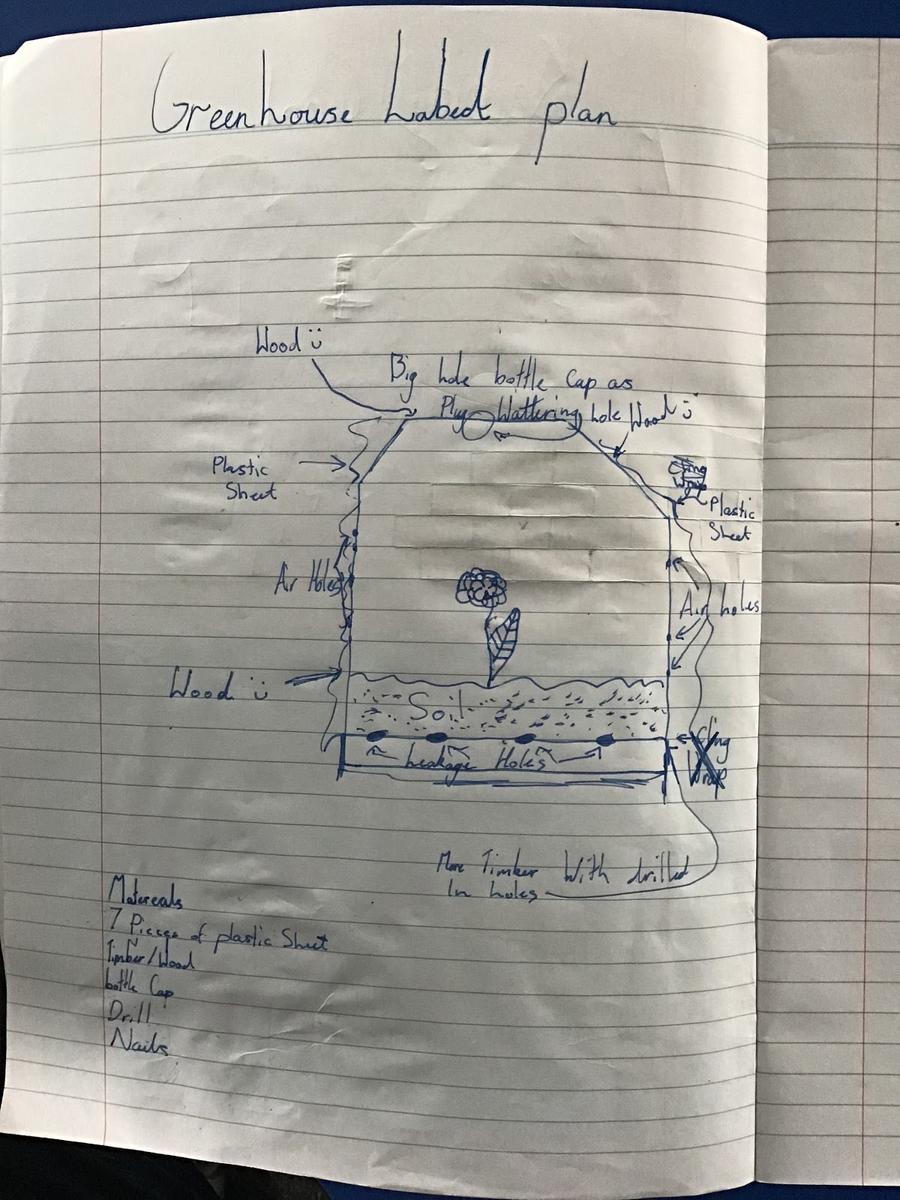 Greenhouse Labed plan
Wood
Big hole bottle Cap as
Plug Wattering hole Wood
Plastic
Sheet
Cling
Wrap
Plastic
Sheet
Air Holes
Air holes
Wood
Soil
Cling
Wrap
Leakage Holes
More Timber With drilled
In holes
Matereals
7 Pieces of plastic Sheet
Timber/Wood
bottle Cap
Drill
Nails